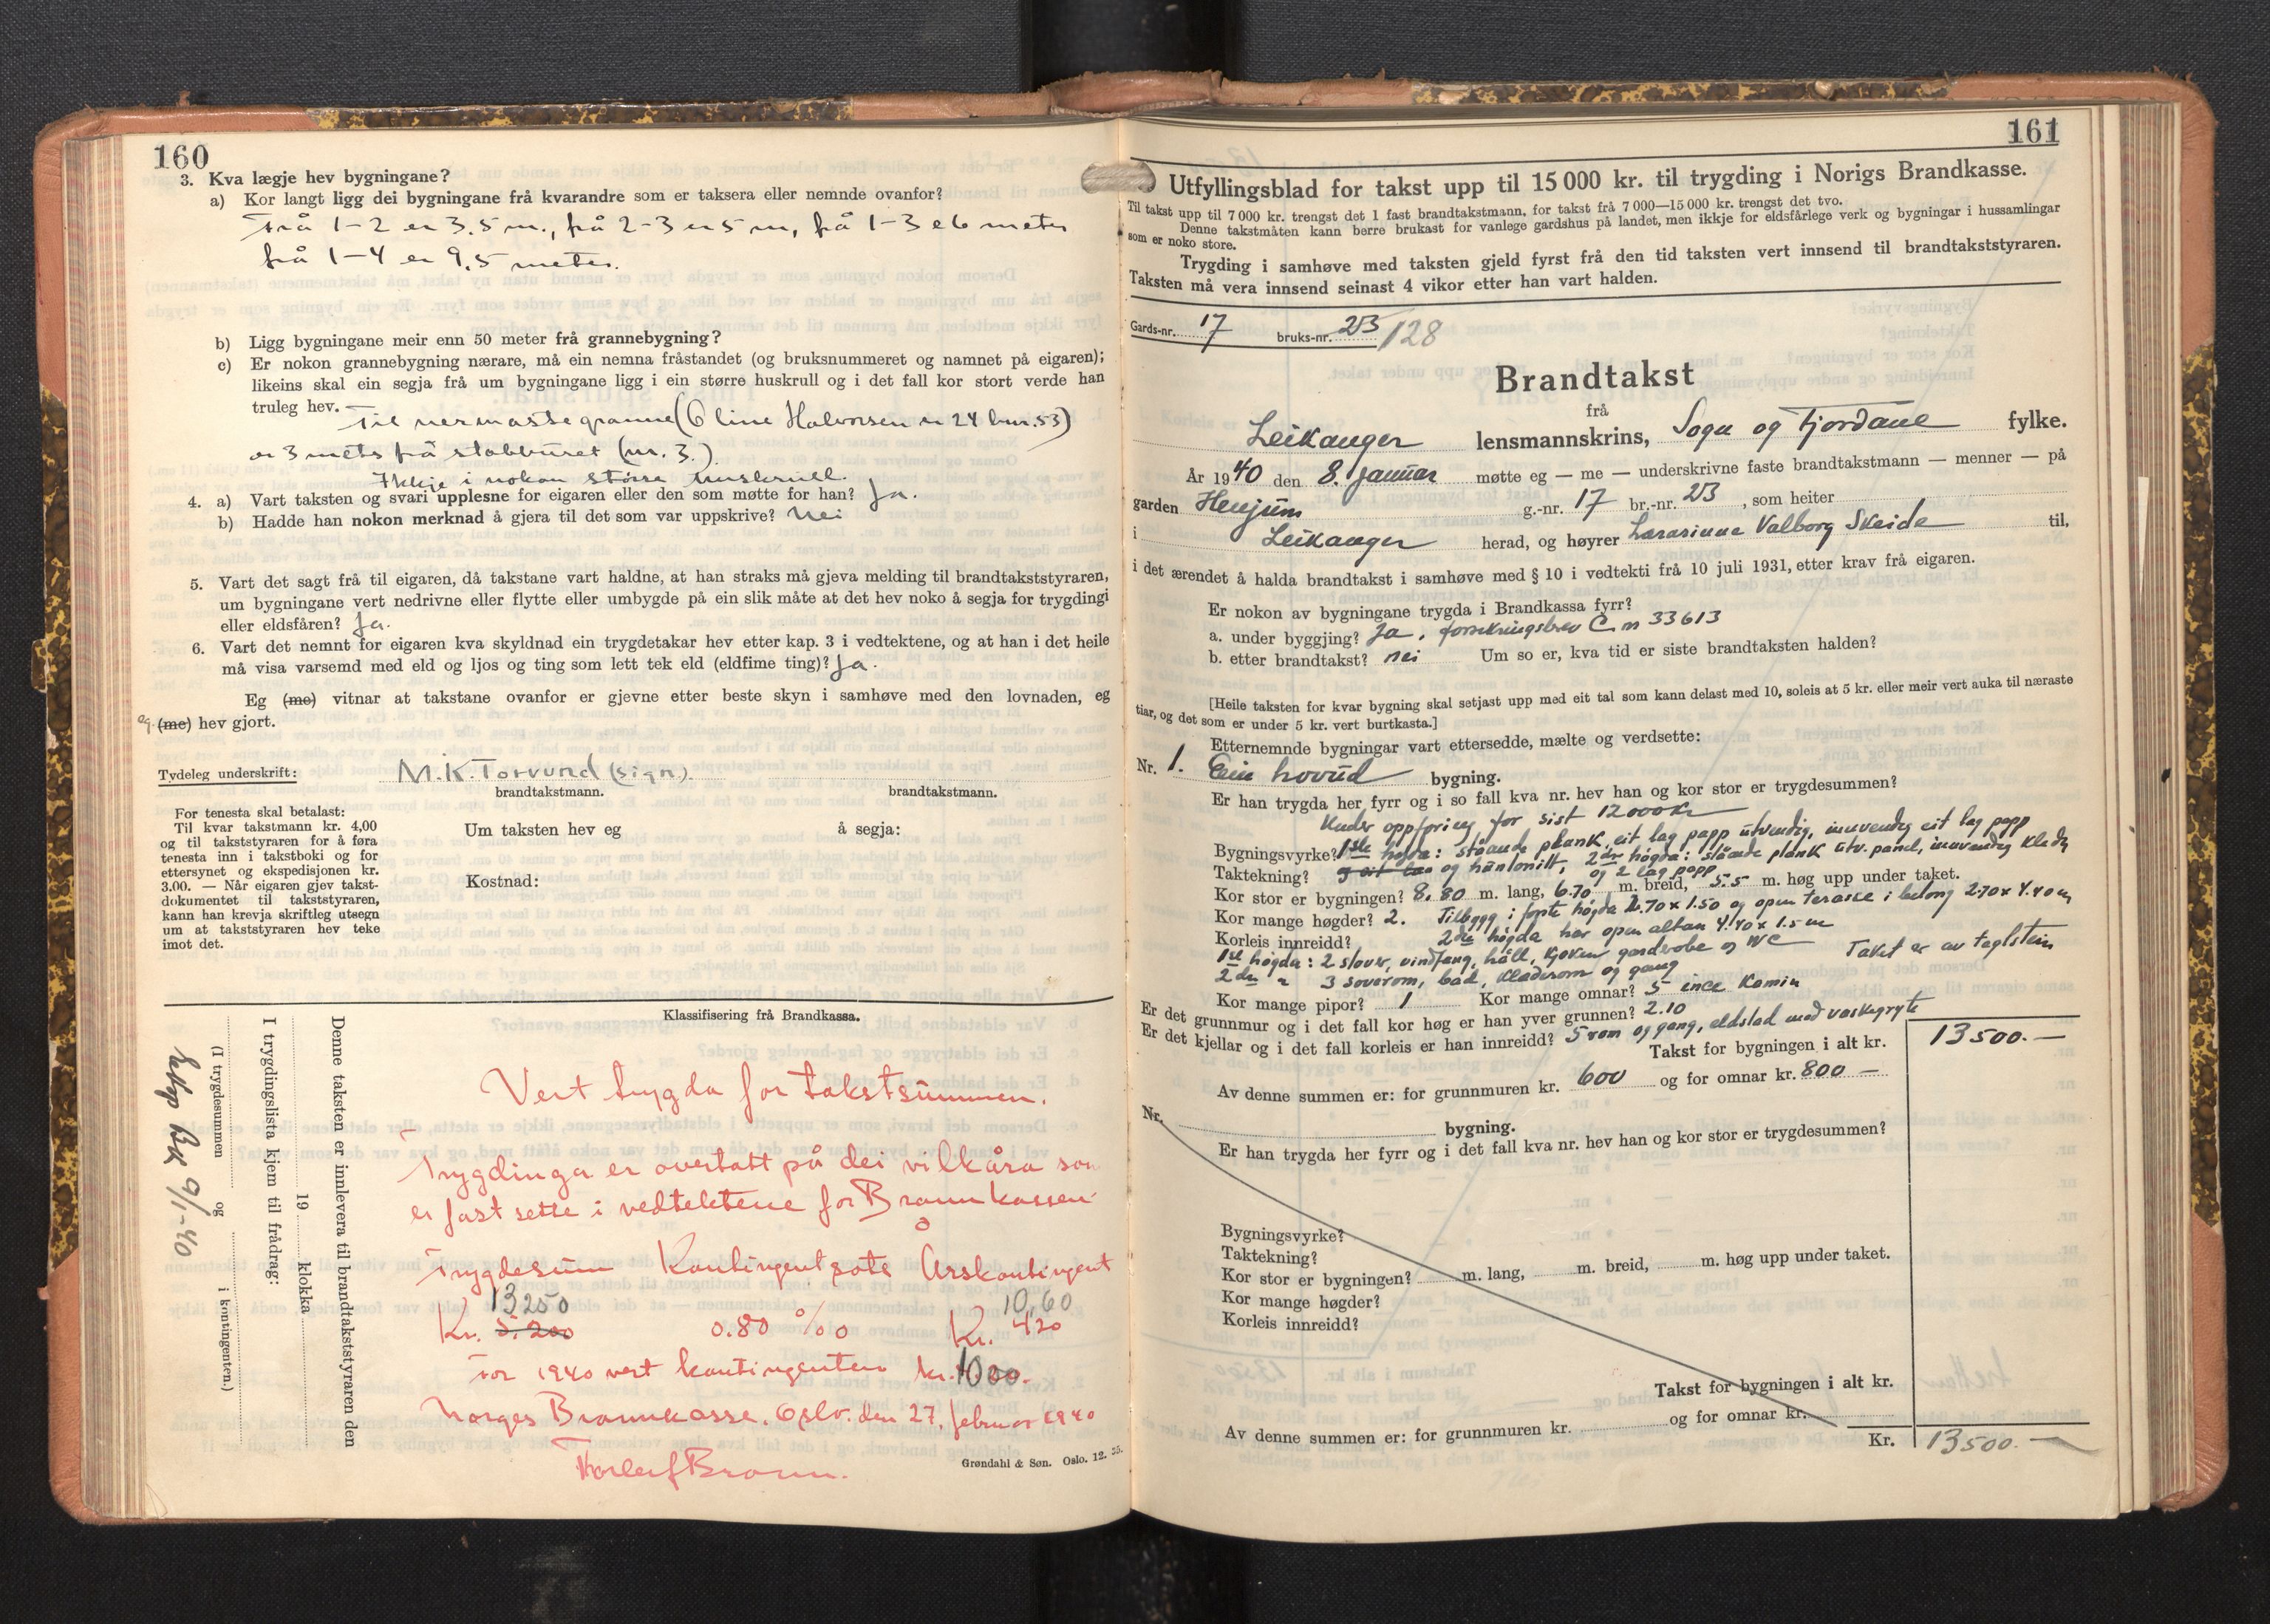 160
3. Kva lægje hev bygningane?
a) Kor langt ligg dei bygningane frå kvarandre som er taksera eller nemnde ovanfor?
Frå 1-2 er 3.5 m., frå 2-3 er 5 m, frå 1-3 e 6 meter
frå 1-4 er 9,5 meter.
b) Ligg bygningane meir enn 50 meter frå grannebygning?
c) Er nokon grannebygning nærare, må ein nemna fråstandet (og bruksnummeret og namnet på eigaren);
likeins skal ein segja frå um bygningane ligg i ein større huskrull og i det fall kor stort verde han
truleg hev.
Til nermaste granne (Oline Halvorsen 24 bnr. 53)
er 3 meter frå stabburet (nr. 3.)
Ikkje i nokon større huskrull.
4. a) Vart taksten og svari upplesne for eigaren eller den som møtte for han? Ja.
b) Hadde han nokon merknad å gjera til det som var uppskrive? Nei
5. Vart det sagt frå til eigaren, då takstane vart haldne, at han straks må gjeva melding til brandtakststyraren,
um bygningane vert nedrivne eller flytte eller umbygde på ein slik måte at det hev noko å segja for trygdingi
eller eldsfåren? Ja.
6. Vart det nemnt for eigaren kva skyldnad ein trygdetakar hev etter kap. 3 i vedtektene, og at han i det heile
må visa varsemd med eld og ljos og ting som lett tek eld (eldfime ting)? Ja.
Eg (me) vitnar at takstane ovanfor er gjevne etter beste skyn i samhøve med den lovnaden, eg
eg (me) hev gjort.
Tydeleg underskrift: M.K. Torvund (sign).
brandtakstmann. brandtakstmann.
For tenesta skal betalast:
Til kvar takstmann kr. 4,00
og til takststyraren for å føra
tenesta inn i takstboki og for
ettersynet og ekspedisjonen kr.
3.00. — Når eigaren gjev takst-
dokumentet til takststyraren,
kann han krevja skriftleg utsegn
um at takststyraren hev teke
imot det.
Um taksten hev eg å segja:
Kostnad:
Klassifisering frå Brandkassa.
Denne taksten er innlevera til brandtakststyraren den
19 klokka
I trygdingslista kjem til frådrag:
(I trygdesummen og i kontingenten.)
9/1-40
Vert trygda for takstsummen.
Trygdinga er overtatt på dei vilkåra som
er fastsette i vedtektene for Brannkassen
Trygdesum Kontingentsats Årskontingent
13250 10,60
Kr. 5.200 0.80 ‰ Kr. 4,20
For 1940 vert kontingenten kr. 10.00.
Norges Brannkasse, Oslo. den 27. februar 1940
Torleif Bramm.
Grøndahl & Søn. Oslo. 12. 35.
161
Utfyllingsblad for takst upp til 15 000 kr. til trygding i Norigs Brandkasse.
Til takst upp til 7 000 kr. trengst det 1 fast brandtakstmann, for takst frå 7 000—15 000 kr. trengst det tvo.
Denne takstmåten kann berre brukast for vanlege gardshus på landet, men ikkje for eldsfårlege verk og bygningar i hussamlingar
som er noko store.
Trygding i samhøve med taksten gjeld fyrst frå den tid taksten vert innsend til brandtakststyraren.
Taksten må vera innsend seinast 4 vikor etter han vart halden.
Gards-nr. 17 bruks-nr. 213 128
Brandtakst
frå
Leikanger lensmannskrins, Sogn og Fjordane fylke.
År 1940 den 8. Januar møtte eg — me — underskrivne faste brandtakstmann — menner — på
garden Henjum g.-nr. 17 br.-nr. 213, som heiter
i Leikanger herad, og høyrer Lærarinne Valborg Skeide til,
i det ærendet å halda brandtakst i samhøve med § 10 i vedtekti frå 10 juli 1931, etter krav frå eigaren.
Er nokon av bygningane trygda i Brandkassa fyrr?
a. under byggjing? Ja. forsikringsbrev C nr 33613
b. etter brandtakst? nei Um so er, kva tid er siste brandtaksten halden?
[Heile taksten for kvar bygning skal setjast upp med eit tal som kann delast med 10, soleis at 5 kr. eller meir vert auka til næraste
tiar, og det som er under 5 kr. vert burtkasta.]
Etternemnde bygningar vart ettersedde, mælte og verdsette:
Nr. 1. Ein hovud bygning.
Er han trygda her fyrr og i so fall kva nr. hev han og kor stor er trygdesummen?
Under oppföring for sist 12000 kr
Bygningsvyrke? 1ste högda: ståande plank, eit lag papp utvendig, innvendig eit lag papp
Taktekning? og huntonitt, 2dre högda: ståande plank utv. panel, innvendig kledn
og 2 lag papp
Kor stor er bygningen? 8.80 m. lang, 6.70 m. breid, 5.5 m. høg upp under taket.
Kor mange høgder? 2. Tilbygg i fyrste högda 2.70 x 1.50 og open terasse i betong 2.70 x 4.40 m
Korleis innreidd? 2dre högda har open altan 4.40 x 1.5 m
1ste högda: 2 stover, vindfang, hall, kjöken garderobe og WC Taket er av teglstein
2dre " 3 soverom, bad, kladerom og gang
Kor mange pipor? 1 Kor mange omnar? 5 ince Kamin
Er det grunnmur og i det fall kor høg er han yver grunnen? 2.10
Er det kjellar og i det fall korleis er han innreidd? 5 rom og gang, eldstad med vaskegryte
Takst for bygningen i alt kr. 13500.—
Av denne summen er: for grunnmuren kr. 600 og for omnar kr. 800 —
Nr. bygning.
Er han trygda her fyrr og i det fall kva nr. hev han og kor stor er trygdesummen?
Bygningsvyrke?
Taktekning?
Kor stor er bygningen? m. lang, m. breid, m. høg upp under taket.
Kor mange høgder?
Korleis innreidd?
Takst for bygningen i alt kr.
Av denne summen er: for grunnmuren kr. og for omnar kr.
Kr. 13500.—